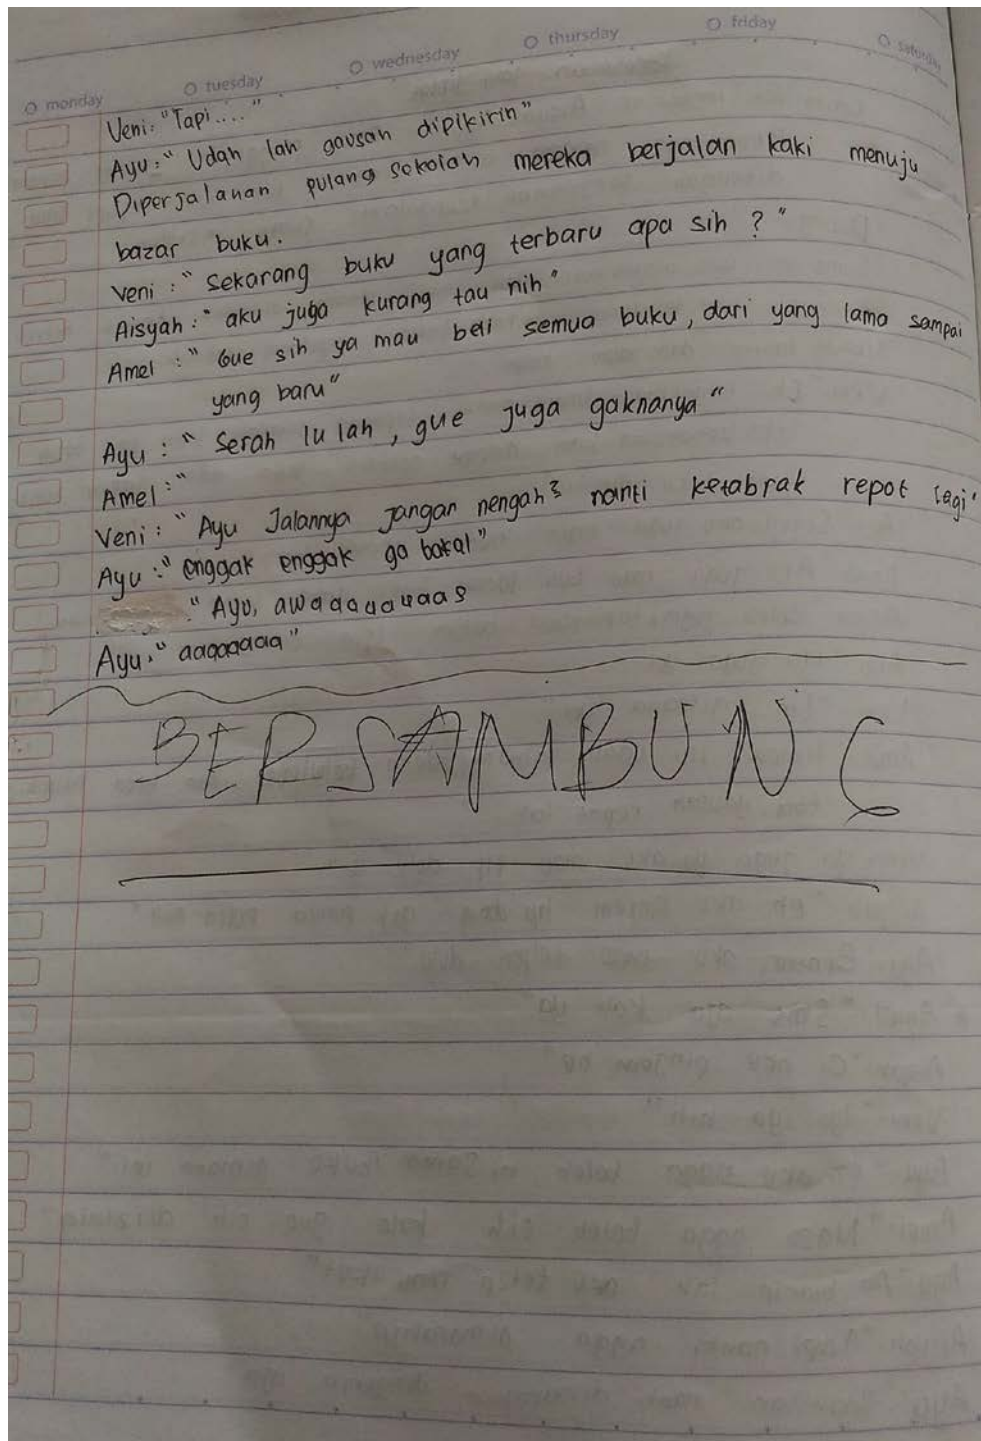 monday tuesday wednesday thursday friday saturday
Veni: "Tapi...."
Ayu: "Udah lah gausah dipikirin"
Diperjalanan pulang sekolah mereka berjalan kaki menuju
bazar buku.
Veni: "Sekarang buku yang terbaru apa sih ?"
Aisyah: "aku juga kurang tau nih"
Amel: "Gue sih ya mau beli semua buku, dari yang lama sampai
yang baru"
Ayu: "Serah lu lah, gue juga gaknanya"
Amel: "
Veni: "Ayu Jalannya jangan nengah² nanti ketabrak repot lagi"
Ayu: "enggak enggak ga bakal"
"Ayu, awaaaaaaaas
Ayu: "aaaaaaaaa"
BERSAMBUNG